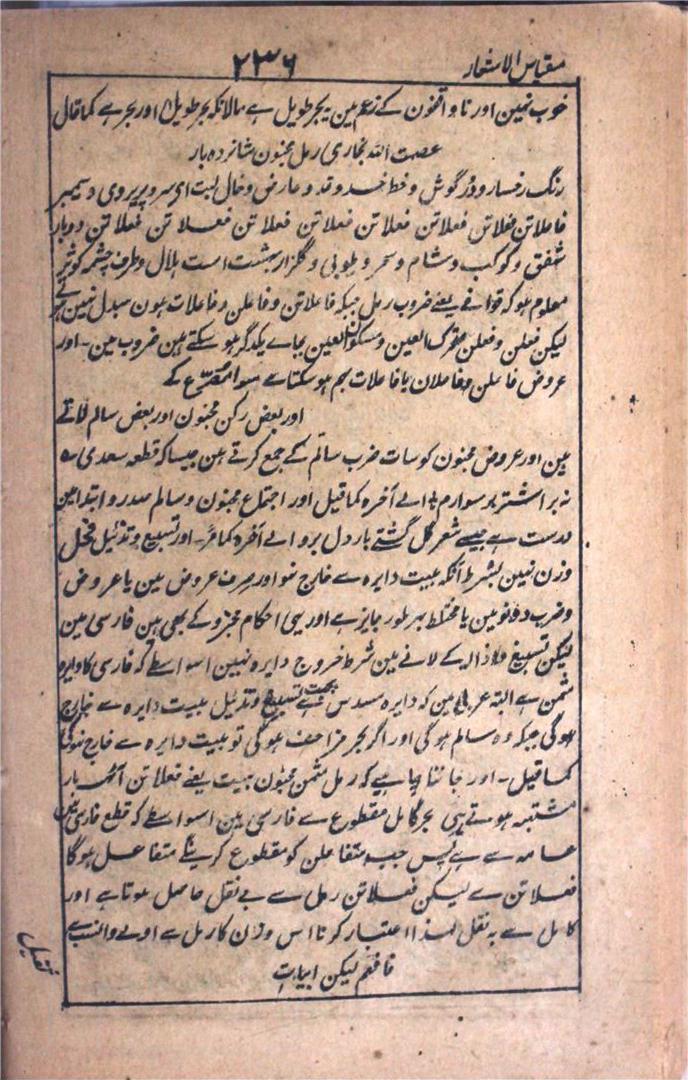 مقیاس الاشعار
۲۳۶
خوب نہین اور ناواقفون کے زعم مین یہ بحر طویل ہے حالانکہ بحر طویل اور بحر ہے کما قال
عصمت اللہ بخاری رمل مخبون شانزدہ بار
رنگ رخسار و دُر گوش و خط خد و قد و عارض و خال لبت ای سرو پریروی دسیمبر
فاعلاتن فعلاتن فعلاتن فعلاتن فعلاتن فعلاتن فعلاتن فعلاتن دوبار
شفق و کوکب و شام و سحر و طوبی و گلزار بہشت است ہلال و طرف چشمہ کوثر
معلوم ہو کہ قوافے یعنے ضروب رمل جبکہ فاعلاتن و فاعلن و فاعلات ہون مبدل نہین
لیکن فعلن و فعلن متحرک العین و مسکون العین بجاے یکدگر ہو سکتے ہین ضروب مین ۔ اور
عروض فاعلن و فاعلان یا فاعلات بہم ہو سکتا ہے سوا مصرّع کے
اور بعض رکن مخبون اور بعض سالم لاتے
ہین اور عروض مخبون کو سات ضرب سالم کے جمع کرتے ہین جیسا کہ قطعہ سعدی ؎
نہ بر اشتر بر سوارم الے آخرہ کما قیل اور اجتماع مخبون و سالم صدر و ابتدا مین
درست ہے جیسے شعر گل گشتے بار دل برو الے آخرہ کما مرّ ۔ اور تسبیغ و تذئیل مخل
وزن نہین بشرط آنکہ بیت دایرہ سے خارج نہو اور صرف عروض مین یا عروض
و ضرب دونو مین یا مختلط بہر طور جایز ہے اور یہی احکام مجزو کے بھی ہین فارسی مین
لیکن تسبیغ و اذالہ کے لانے مین شرط خروج دایرہ نہین اسواسطے کہ فارسی کا دایرہ
مثمن ہے البتہ عربی مین کہ دایرہ مسدس ہے بجہت تسبیغ و تذئیل بیت دایرہ سے خارج
ہوگی جبکہ وہ سالم ہوگی اور اگر بحر مزاحف ہوگی تو بیت دایرہ سے خارج نہوگی
کما قیل ۔ اور جاننا چاہیے کہ رمل مثمن مخبون بہیت یعنے فعلاتن آٹھ بار
مشتبہ ہوتے ہی بحر کامل مقطوع سے فارسی مین اسواسطے کہ قطع فارسی مین
عامہ سے ہے پس جب متفاعلن کو مقطوع کرینگے متفاعل ہوگا
فعلاتن سے لیکن فعلاتن رمل سے بے نقل حاصل ہوتا ہے اور
کامل سے بہ نقل لہذا اعتبار کرنا اس وزن کا رمل سے اولے و انسب ہے
فافہم لیکن ابیات
تقبل